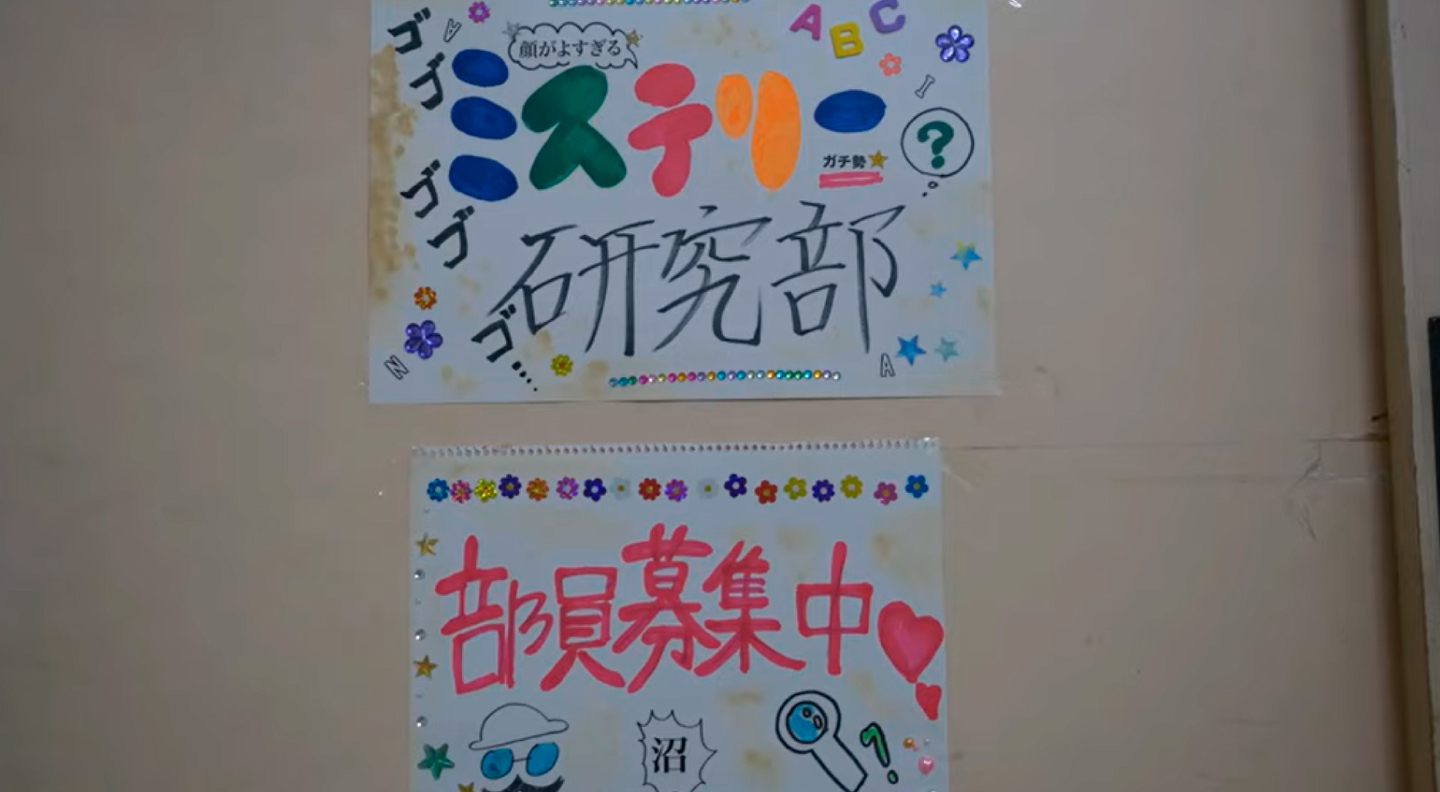 顔がよすぎる
A B C
ミステリー
ガチ勢
?
研究部
ゴゴゴゴゴ....
A
I
N
A
部員募集中
沼
?!